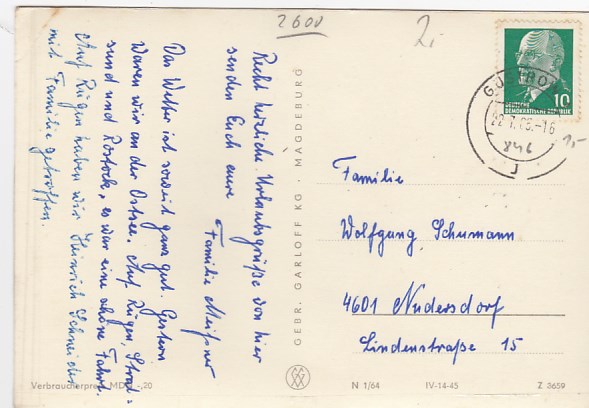 2600
2,-
Recht herzliche Urlaubsgrüße von hier
senden Euch eure
Familie Meißner
Das Wetter ist soweit ganz gut. Gestern
waren wir an der Ostsee. Auf Rügen, Stral-
sund und Rostock, es war eine schöne Fahrt.
Auf Rügen haben wir Heinrich Schneider
mit Familie getroffen.
GEBR. GARLOFF KG · MAGDEBURG
10
DEUTSCHE
DEMOKRATISCHE REPUBLIK
846
J
1,-
Familie
Wolfgang Schumann
4601 Nudersdorf
Lindenstraße 15
Verbraucherpreis MDN -,20
N 1/64 IV-14-45 Z 3659